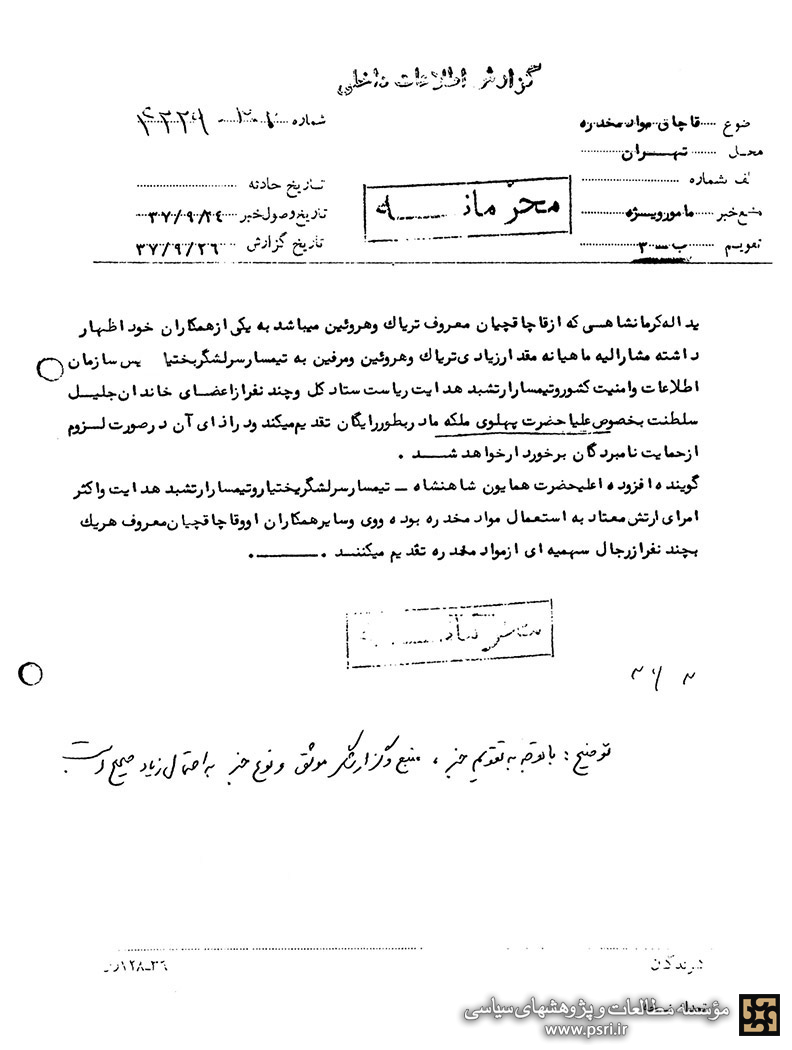 گزارش اطلاعات داخلی
موضوع قاچاق مواد مخدره
شماره
محل تهران
لف شماره
تاریخ حادثه
منبع خبر مامور ویژه
تاریخ وصول خبر ۳۷/۹/۲۴
تقویم ب ـ ۳
تاریخ گزارش ۳۷/۹/۲۶
محرمانه
یداله کرمانشاهی که از قاچاقچیان معروف تریاک و هروئین میباشد به یکی از همکاران خود اظهار
داشته مشارالیه ماهیانه مقدار زیادی تریاک و هروئین و مرفین به تیمسار سرلشگر بختیا یس سازمان
اطلاعات و امنیت کشور و تیمسار ارتشبد هدایت ریاست ستاد کل و چند نفر از اعضای خاندان جلیل
سلطنت بخصوص علیاحضرت پهلوی ملکه مادر بطور رایگان تقدیم میکند و در ازای آن در صورت لزوم
از حمایت نامبردگان برخوردار خواهد شد .
گوینده افزوده اعلیحضرت همایون شاهنشاه ـ تیمسار سرلشگر بختیار و تیمسار ارتشبد هدایت و اکثر
امرای ارتش معتاد به استعمال مواد مخدره بوده و وی و سایر همکاران او و قاچاقچیان معروف هریک
بچند نفر از رجال سهمیه ای از مواد مخدره تقدیم میکنند .
محرمانه
توضیح : با توجه به تقویم خبر ، منبع و گزارشگر موثق و نوع خبر به احتمال زیاد صحیح است
گیرندگان
۳۶ـ۱۲۸
مؤسسه مطالعات و پژوهشهای سیاسی
www.psri.ir